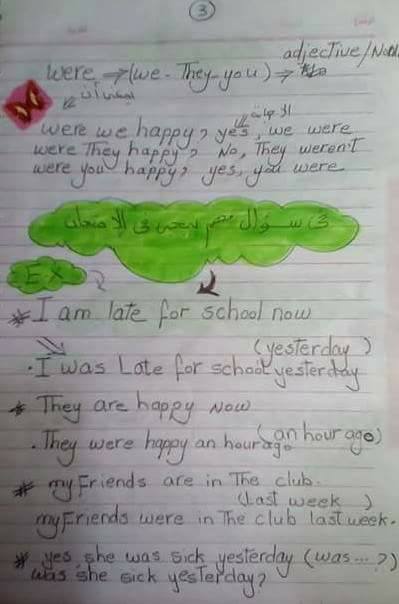 3
adjective/Noun
were ⇒ (we - They - you) ⇒
were we happy? yes, we were
were They happy? No, They weren't
were you happy? yes, you were
EX
* I am late for school now
(yesterday)
. I was Late for school yesterday
* They are happy Now
(an hour ago)
. They were happy an hour ago
* my Friends are in The club.
(Last week)
my Friends were in The club last week.
* yes, she was sick yesterday (was ... ?)
was she sick yesterday?